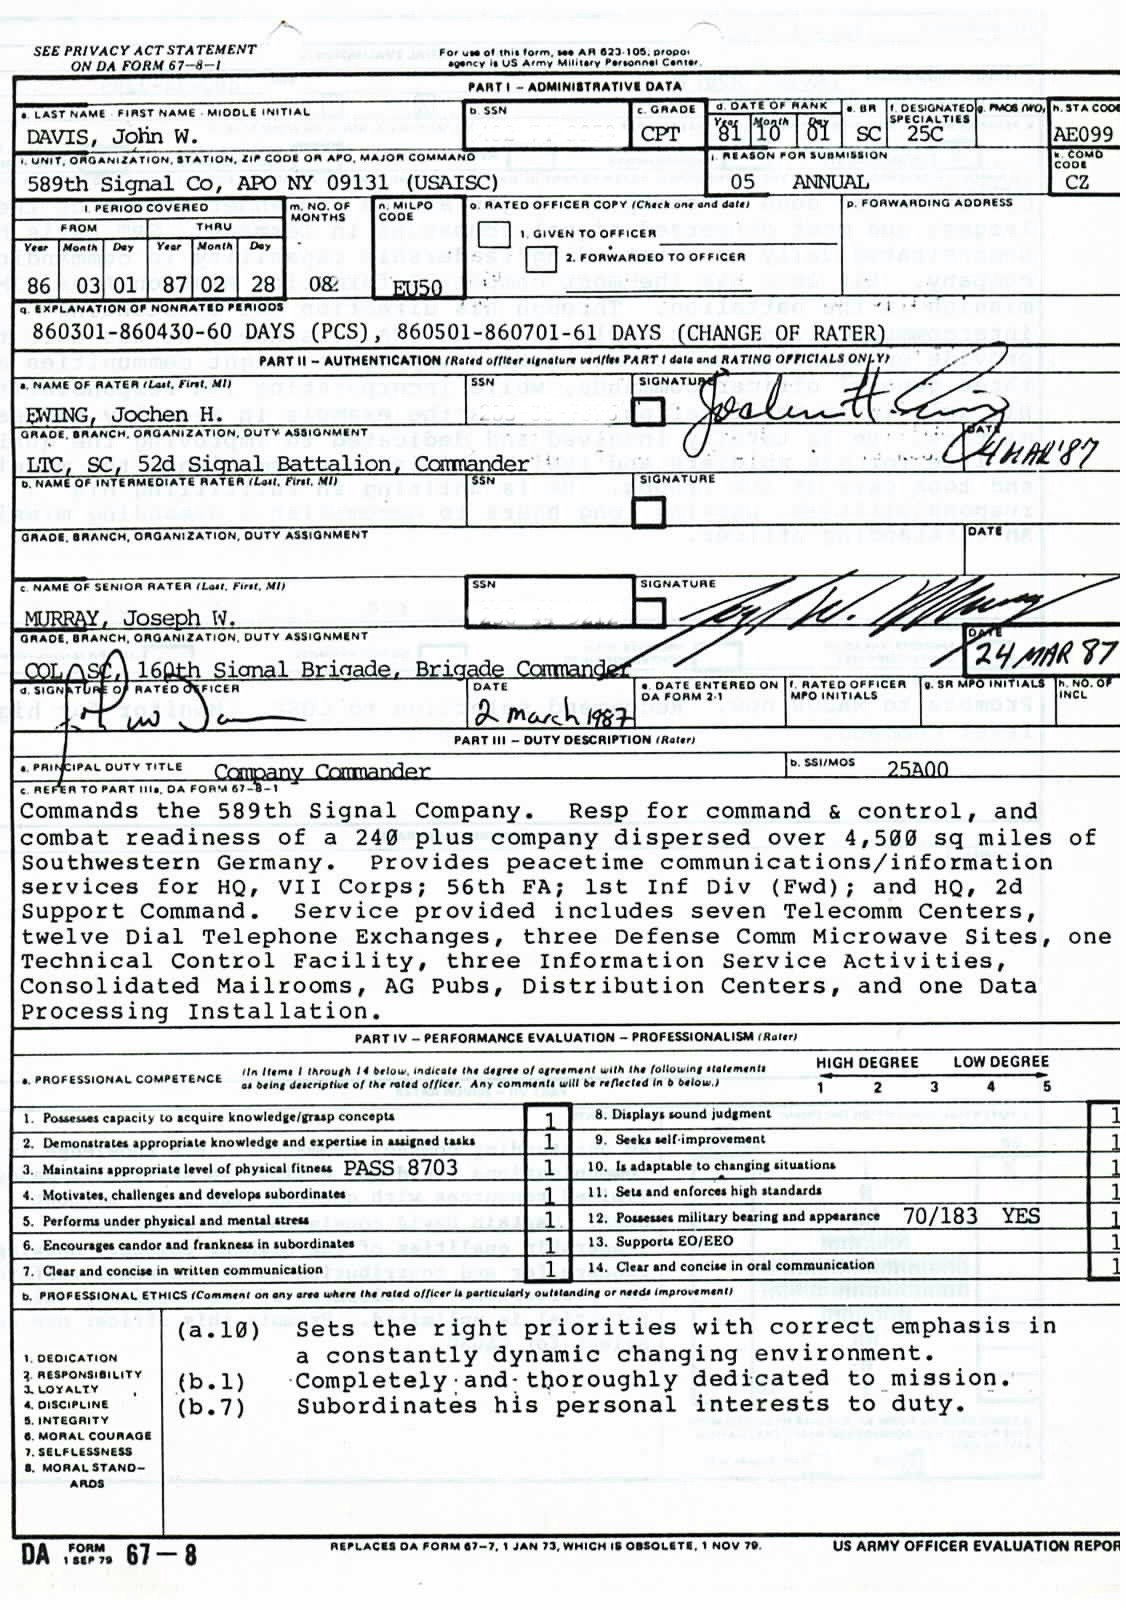 SEE PRIVACY ACT STATEMENT
ON DA FORM 67-8-1
For use of this form, see AR 623-105; propo
agency is US Army Military Personnel Center.
PART I - ADMINISTRATIVE DATA
a. LAST NAME - FIRST NAME - MIDDLE INITIAL
b. SSN
c. GRADE
d. DATE OF RANK
e. BR
f. DESIGNATED SPECIALTIES
g. PMOS (WO)
h. STA CODE
Year Month Day
DAVIS, John W. CPT 81 10 01 SC 25C AE099
i. UNIT, ORGANIZATION, STATION, ZIP CODE OR APO, MAJOR COMMAND
j. REASON FOR SUBMISSION
k. COMD CODE
589th Signal Co, APO NY 09131 (USAISC) 05 ANNUAL CZ
l. PERIOD COVERED
m. NO. OF MONTHS
n. MILPO CODE
o. RATED OFFICER COPY (Check one and date)
p. FORWARDING ADDRESS
FROM THRU
Year Month Day Year Month Day
1. GIVEN TO OFFICER
2. FORWARDED TO OFFICER
86 03 01 87 02 28 08 EU50
q. EXPLANATION OF NONRATED PERIODS
860301-860430-60 DAYS (PCS), 860501-860701-61 DAYS (CHANGE OF RATER)
PART II - AUTHENTICATION (Rated officer signature verifies PART I data and RATING OFFICIALS ONLY)
a. NAME OF RATER (Last, First, MI)
SSN
SIGNATURE
Jochen H. Ewing
EWING, Jochen H.
GRADE, BRANCH, ORGANIZATION, DUTY ASSIGNMENT
DATE
LTC, SC, 52d Signal Battalion, Commander
4 MAR '87
b. NAME OF INTERMEDIATE RATER (Last, First, MI)
SSN
SIGNATURE
GRADE, BRANCH, ORGANIZATION, DUTY ASSIGNMENT
DATE
c. NAME OF SENIOR RATER (Last, First, MI)
SSN
SIGNATURE
MURRAY, Joseph W.
GRADE, BRANCH, ORGANIZATION, DUTY ASSIGNMENT
DATE
COL, SC, 160th Signal Brigade, Brigade Commander
24 MAR 87
d. SIGNATURE OF RATED OFFICER
DATE
2 March 1987
e. DATE ENTERED ON DA FORM 2-1
f. RATED OFFICER MPO INITIALS
g. SR MPO INITIALS
h. NO. OF INCL
PART III - DUTY DESCRIPTION (Rater)
a. PRINCIPAL DUTY TITLE Company Commander
b. SSI/MOS 25A00
c. REFER TO PART IIIa, DA FORM 67-8-1
Commands the 589th Signal Company. Resp for command & control, and
combat readiness of a 240 plus company dispersed over 4,500 sq miles of
Southwestern Germany. Provides peacetime communications/information
services for HQ, VII Corps; 56th FA; 1st Inf Div (Fwd); and HQ, 2d
Support Command. Service provided includes seven Telecomm Centers,
twelve Dial Telephone Exchanges, three Defense Comm Microwave Sites, one
Technical Control Facility, three Information Service Activities,
Consolidated Mailrooms, AG Pubs, Distribution Centers, and one Data
Processing Installation.
PART IV - PERFORMANCE EVALUATION - PROFESSIONALISM (Rater)
a. PROFESSIONAL COMPETENCE (In Items 1 through 14 below, indicate the degree of agreement with the following statements
as being descriptive of the rated officer. Any comments will be reflected in b below.)
HIGH DEGREE LOW DEGREE
1 2 3 4 5
1. Possesses capacity to acquire knowledge/grasp concepts 1
2. Demonstrates appropriate knowledge and expertise in assigned tasks 1
3. Maintains appropriate level of physical fitness PASS 8703 1
4. Motivates, challenges and develops subordinates 1
5. Performs under physical and mental stress 1
6. Encourages candor and frankness in subordinates 1
7. Clear and concise in written communication 1
8. Displays sound judgment 1
9. Seeks self-improvement 1
10. Is adaptable to changing situations 1
11. Sets and enforces high standards 1
12. Possesses military bearing and appearance 70/183 YES 1
13. Supports EO/EEO 1
14. Clear and concise in oral communication 1
b. PROFESSIONAL ETHICS (Comment on any area where the rated officer is particularly outstanding or needs improvement)
1. DEDICATION
2. RESPONSIBILITY
3. LOYALTY
4. DISCIPLINE
5. INTEGRITY
6. MORAL COURAGE
7. SELFLESSNESS
8. MORAL STAND-
ARDS
(a.10) Sets the right priorities with correct emphasis in
a constantly dynamic changing environment.
(b.1) Completely and thoroughly dedicated to mission.
(b.7) Subordinates his personal interests to duty.
DA FORM 1 SEP 79 67-8
REPLACES DA FORM 67-7, 1 JAN 73, WHICH IS OBSOLETE, 1 NOV 79.
US ARMY OFFICER EVALUATION REPOR